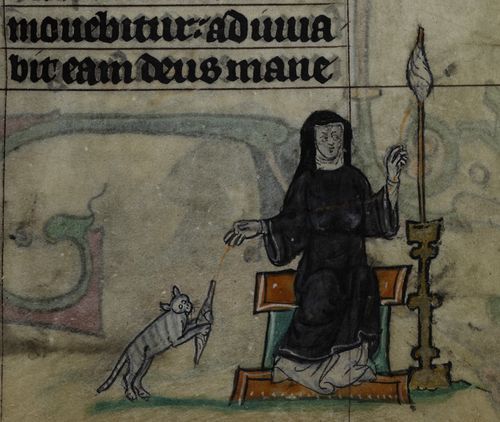 movebitur: adiuva
bit eam deus mane